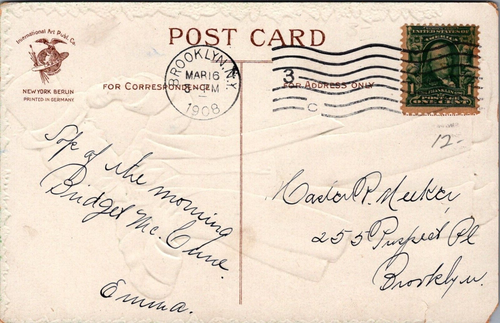 POST CARD
International Art Publ. Co.
NEW YORK BERLIN
PRINTED IN GERMANY
FOR CORRESPONDENCE
FOR ADDRESS ONLY
BROOKLYN, N.Y.
MAR 16
1908
3
C
UNITED STATES OF
AMERICA
ONE CENT
12-
Top of the morning
Bridget Mc. Cune.
Emma.
Master R. Meeker,
255 Prospect Pl
Brooklyn.